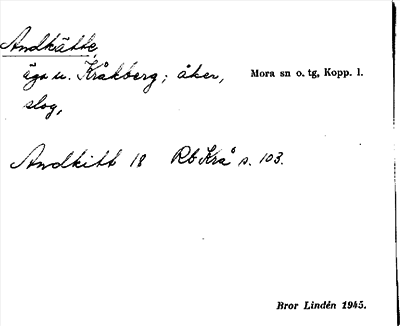 Andkätte,
äga u. Kråkberg; åker, Mora sn o. tg, Kopp. l.
slog,
Andkitt 18 Rb Krå s. 103.
Bror Lindén 1945.